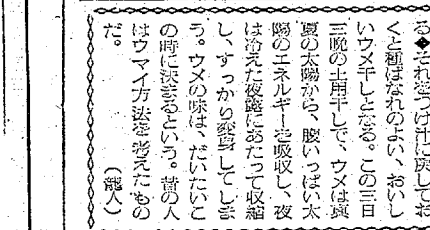 る◆それをつけ汁に戻してお
くと種ばなれのよい、おいし
いウメ干しとなる。この三日
三晩の土用干しで、ウメは真
夏の太陽から、腹いっぱい太
陽のエネルギーを吸収し、夜
は冷えた夜露にあたって収縮
し、すっかり変身してしま
う。ウメの味は、だいたいこ
の時に決まるという。昔の人
はウマイ方法を考えたもの
だ。　　　　　（龍人）